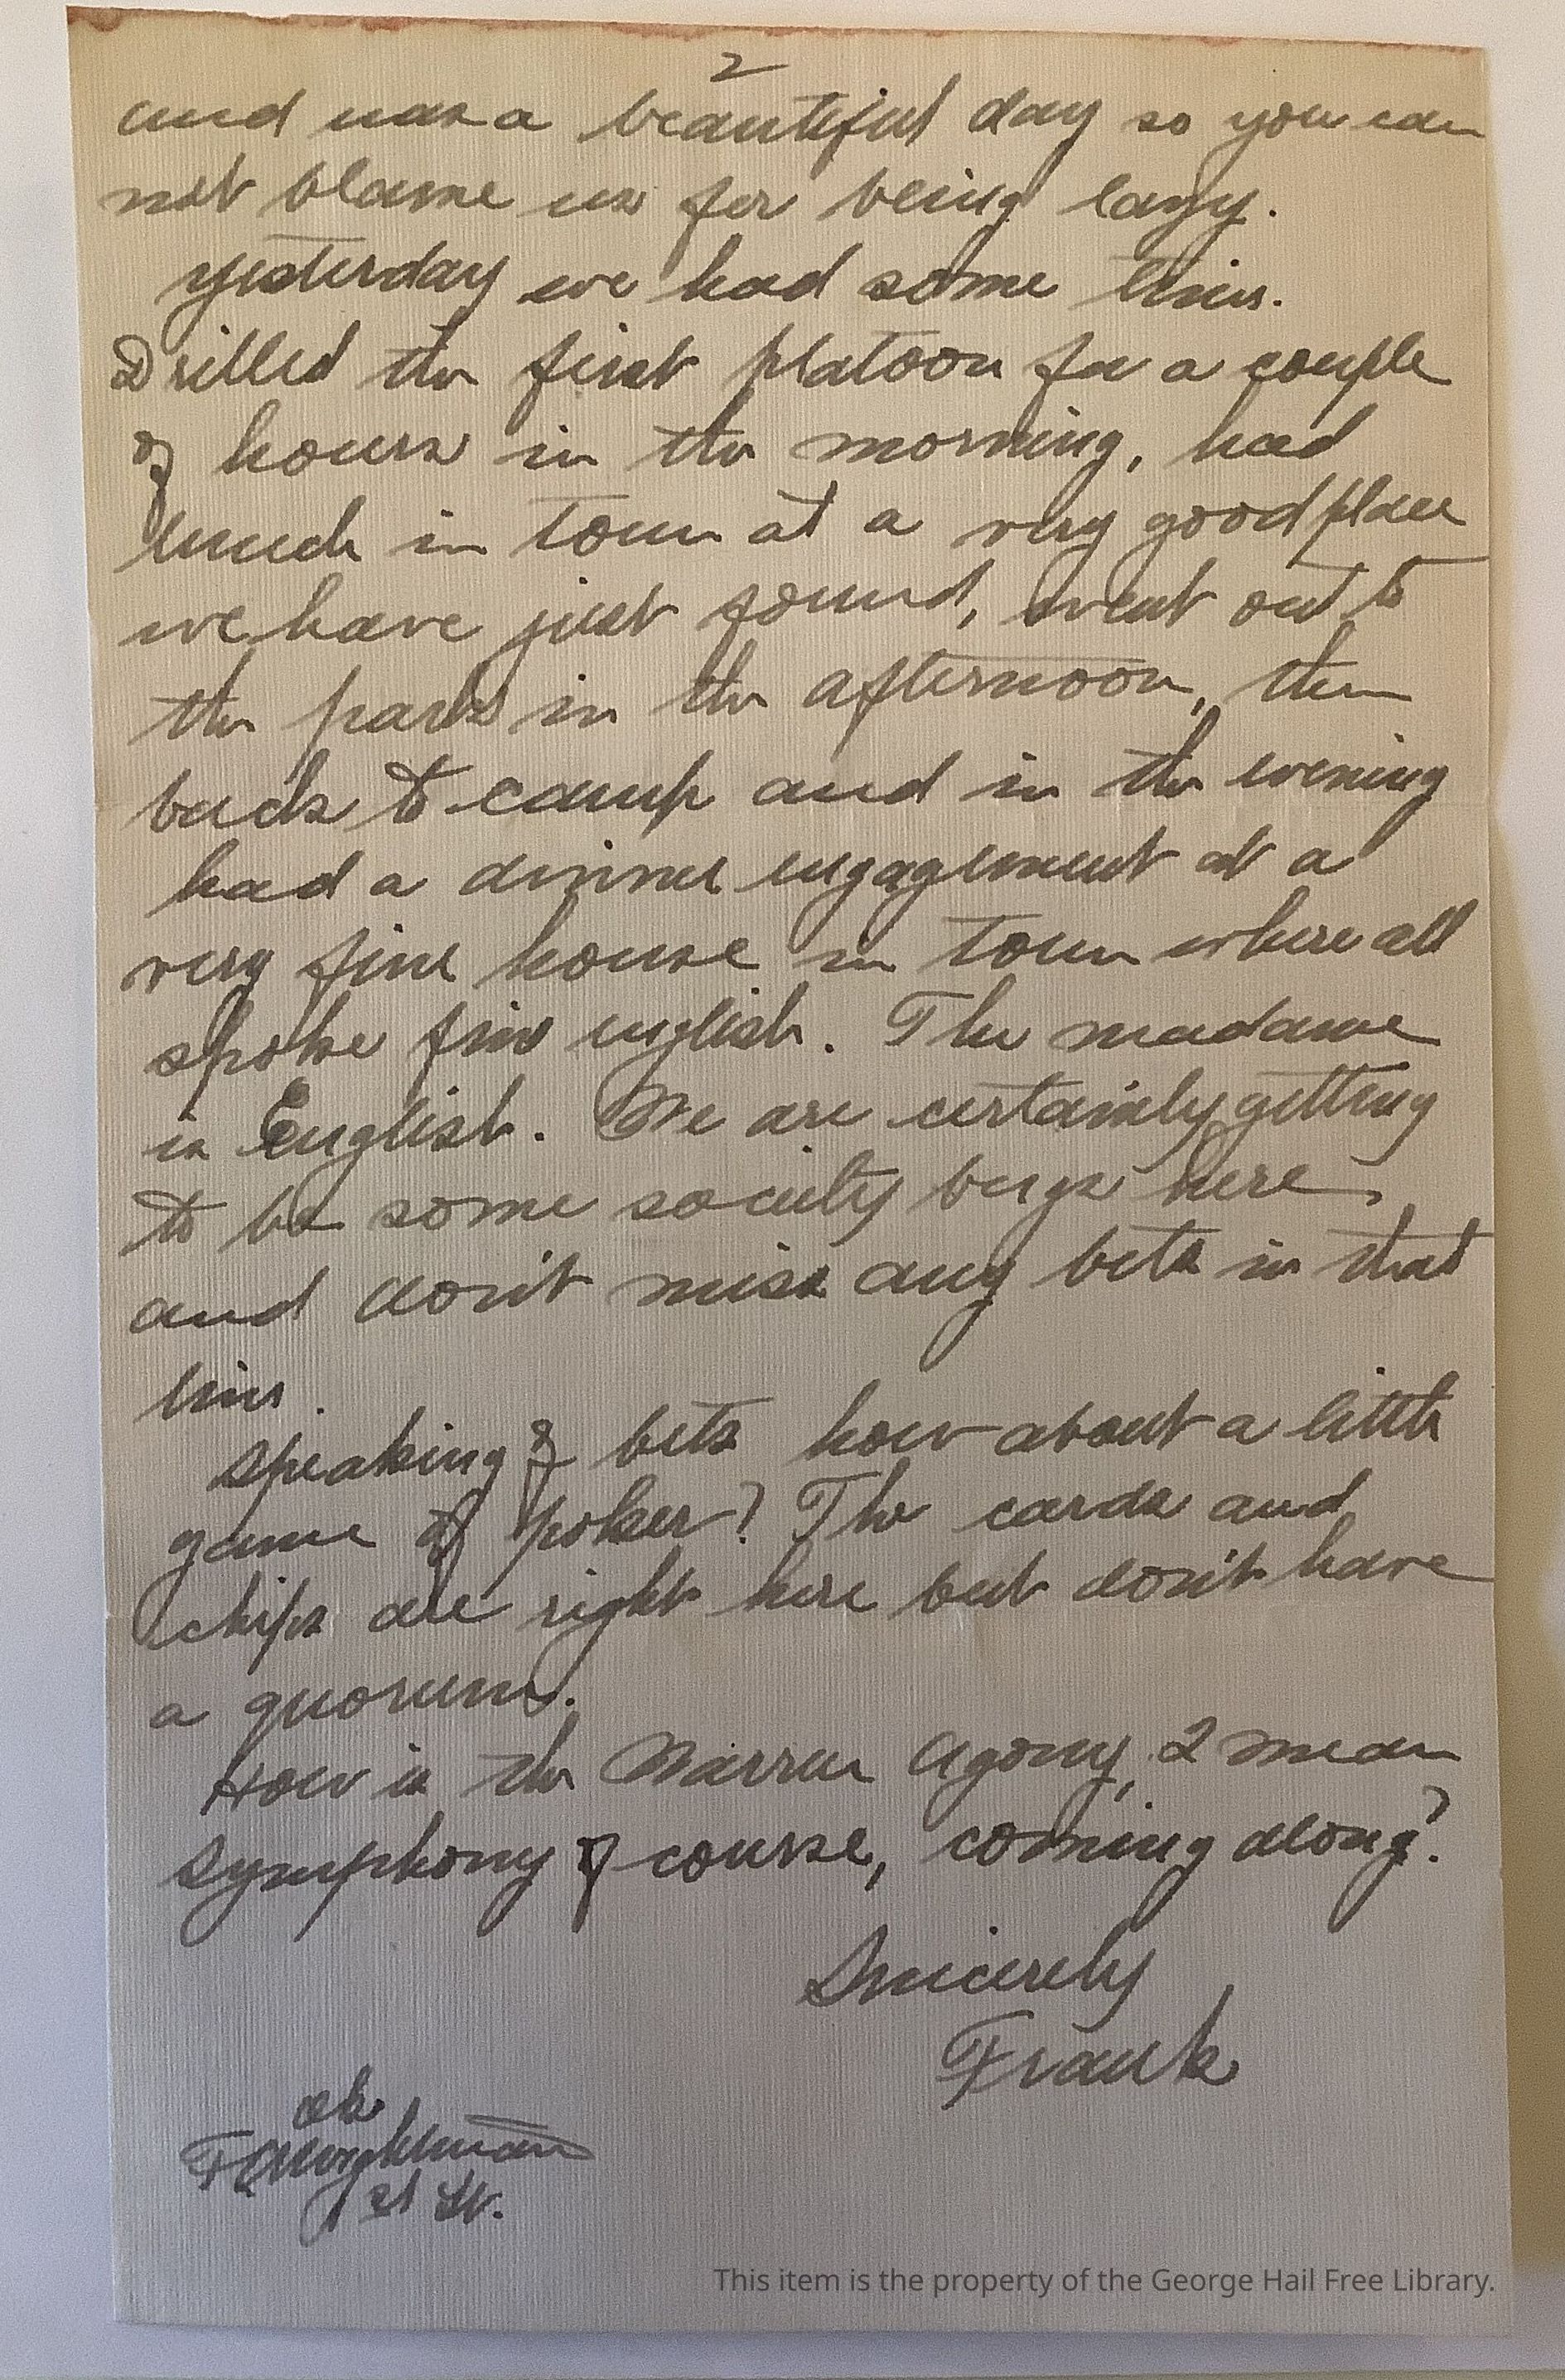 2
and was a beautiful day so you can
not blame us for being lazy.
yesterday we had some time.
Drilled the first platoon for a couple
of hours in the morning, had
lunch in town at a very good place
we have just found, went out to
the park in the afternoon, then
back to camp and in the evening
had a dinner engagement at a
very fine house in town where all
spoke fine english. The madame
is English. We are certainly getting
to be some society bugs here,
and don't miss any bets in that
line.
Speaking of bets how about a little
game of poker? The cards and
chips are right here but don't have
a quorum.
How is the Warren Agony, I mean
Symphony of course, coming along?
Sincerely
Frank
ok
1st Lt.
This item is the property of the George Hail Free Library.